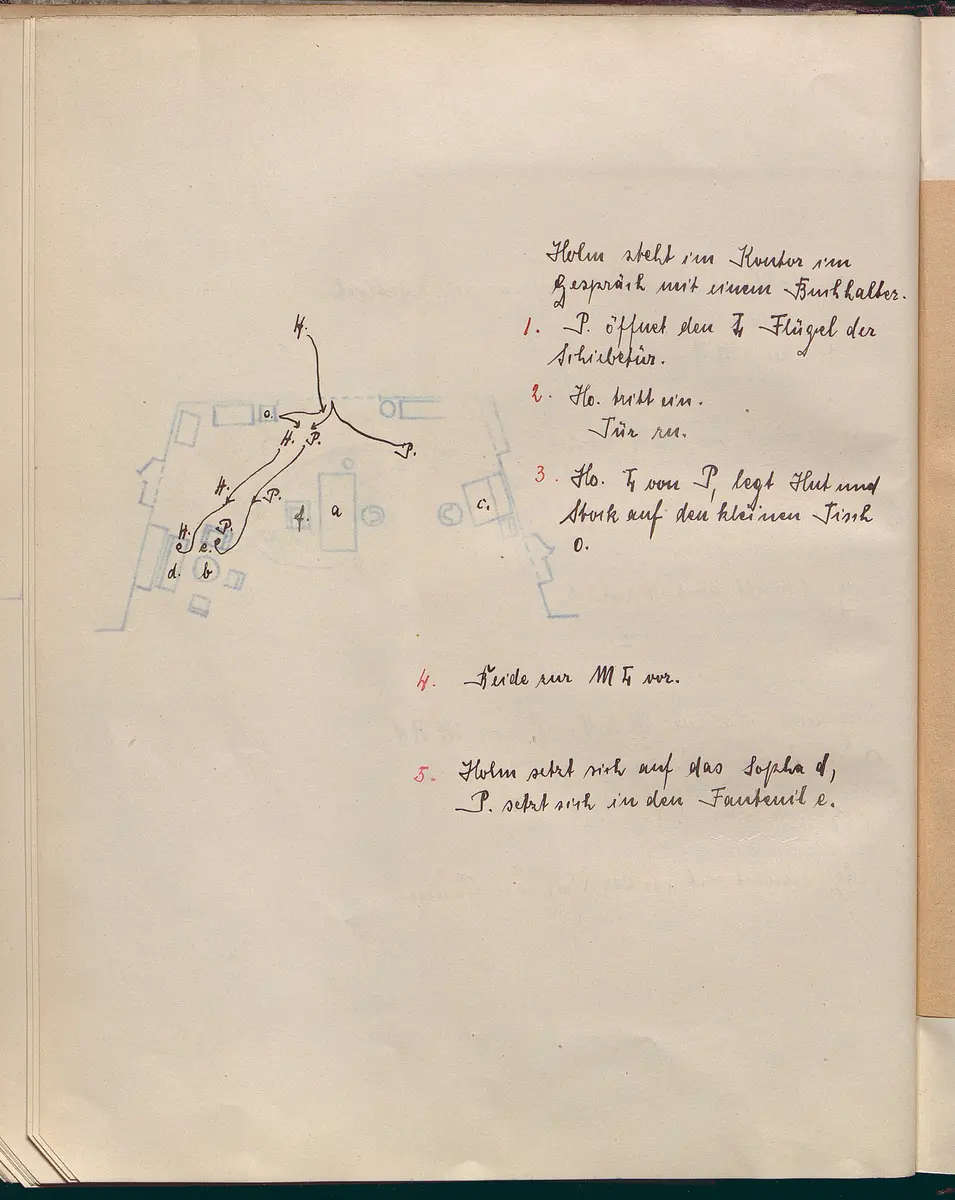 Holm steht im Kontor im
Gespräch mit einem Buchhalter.
1. P. öffnet den L Flügel der
Schiebetür.
2. Ho. tritt ein.
Tür zu.
3. Ho. L von P, legt Hut und
Stock auf den kleinen Tisch
o.
H.
o.
H. P.
P.
H.
P.
f. a
c.
H. P.
e.
d. b
4. Beide zur M L vor.
5. Holm setzt sich auf das Sopha d,
P. setzt sich in den Fauteuil e.